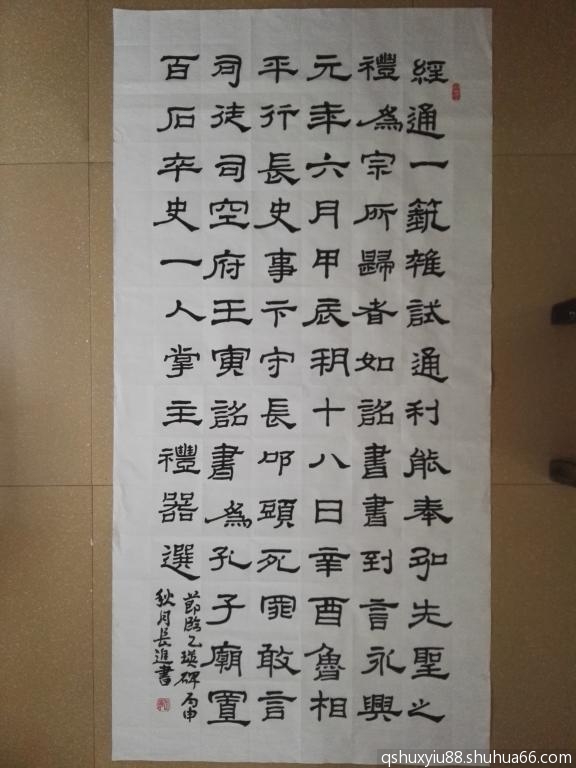 經通一藝雜試通利能奉弘先聖之
禮為宗所歸者如詔書書到言永興
元年六月甲辰朔十八日辛酉魯相
平行長史事卞守長叩頭死罪敢言
司徒司空府王寅詔書為孔子廟置
百石卒史一人掌主禮器選
節臨乙瑛碑丙申
秋月長進書
qshuxyiu88.shuhua66.com